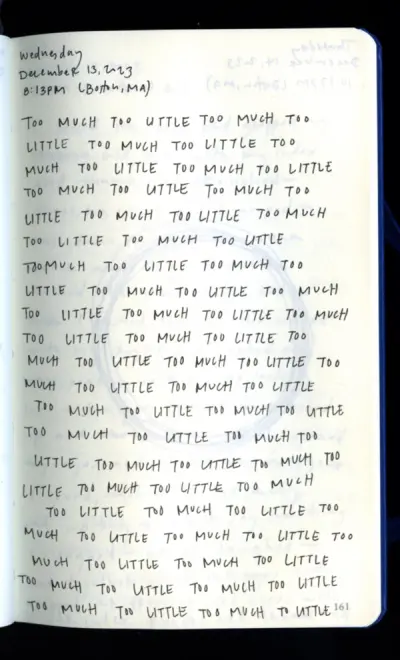 Wednesday
December 13, 2023
8:13PM (Boston, MA)
TOO MUCH TOO LITTLE TOO MUCH TOO
LITTLE TOO MUCH TOO LITTLE TOO
MUCH TOO LITTLE TOO MUCH TOO LITTLE
TOO MUCH TOO LITTLE TOO MUCH TOO
LITTLE TOO MUCH TOO LITTLE TOO MUCH
TOO LITTLE TOO MUCH TOO LITTLE
TOO MUCH TOO LITTLE TOO MUCH TOO
LITTLE TOO MUCH TOO LITTLE TOO MUCH
TOO LITTLE TOO MUCH TOO LITTLE TOO MUCH
TOO LITTLE TOO MUCH TOO LITTLE TOO
MUCH TOO LITTLE TOO MUCH TOO LITTLE TOO
MUCH TOO LITTLE TOO MUCH TOO LITTLE
TOO MUCH TOO LITTLE TOO MUCH TOO LITTLE
TOO MUCH TOO LITTLE TOO MUCH TOO
LITTLE TOO MUCH TOO LITTLE TOO MUCH TOO
LITTLE TOO MUCH TOO LITTLE TOO MUCH
TOO LITTLE TOO MUCH TOO LITTLE TOO
MUCH TOO LITTLE TOO MUCH TOO LITTLE TOO
MUCH TOO LITTLE TOO MUCH TOO LITTLE
TOO MUCH TOO LITTLE TOO MUCH TOO LITTLE
TOO MUCH TOO LITTLE TOO MUCH TO LITTLE 161